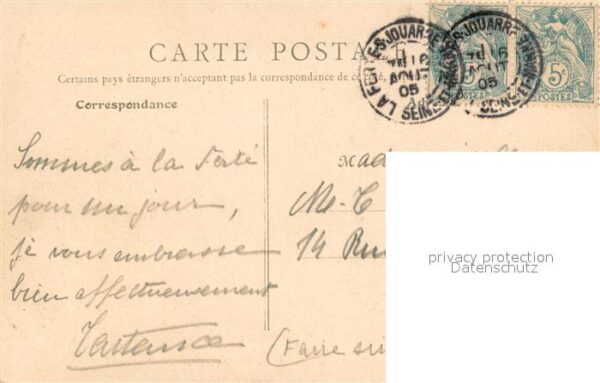 CARTE POSTALE
Certains pays étrangers n'acceptant pas la correspondance de ce côté,
Correspondance
LA FERTÉ-S-JOUARRE
AOUT
05
SEINE-ET-MARNE
JOUARRE
AOUT
05
SEINE-ET-MARNE
5c
POSTES
POSTES
Sommes à la Ferté
pour un jour,
je vous embrasse
bien affectueusement
Mad
M-C
14 Rue
(Faire
privacy protection
Datenschutz